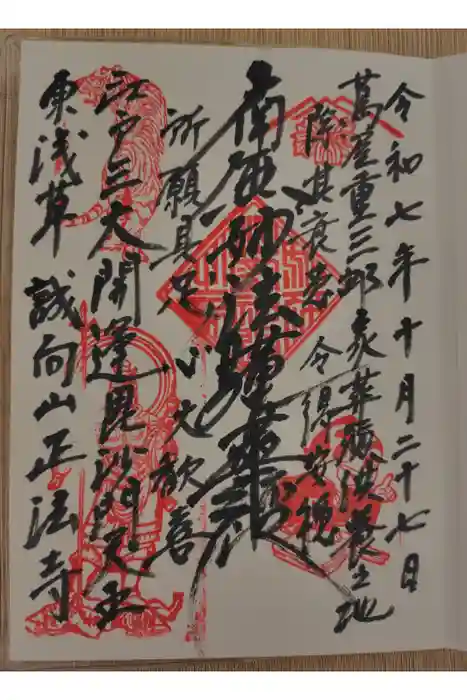 令和七年十月二十七日
萬屋重三郎家菩提浅葬之地
除其衰患 令得安穏
南無妙法蓮華経
所願具足 心大歓喜
江戸三大開運毘沙門天王
東浅草 誠向山正法寺